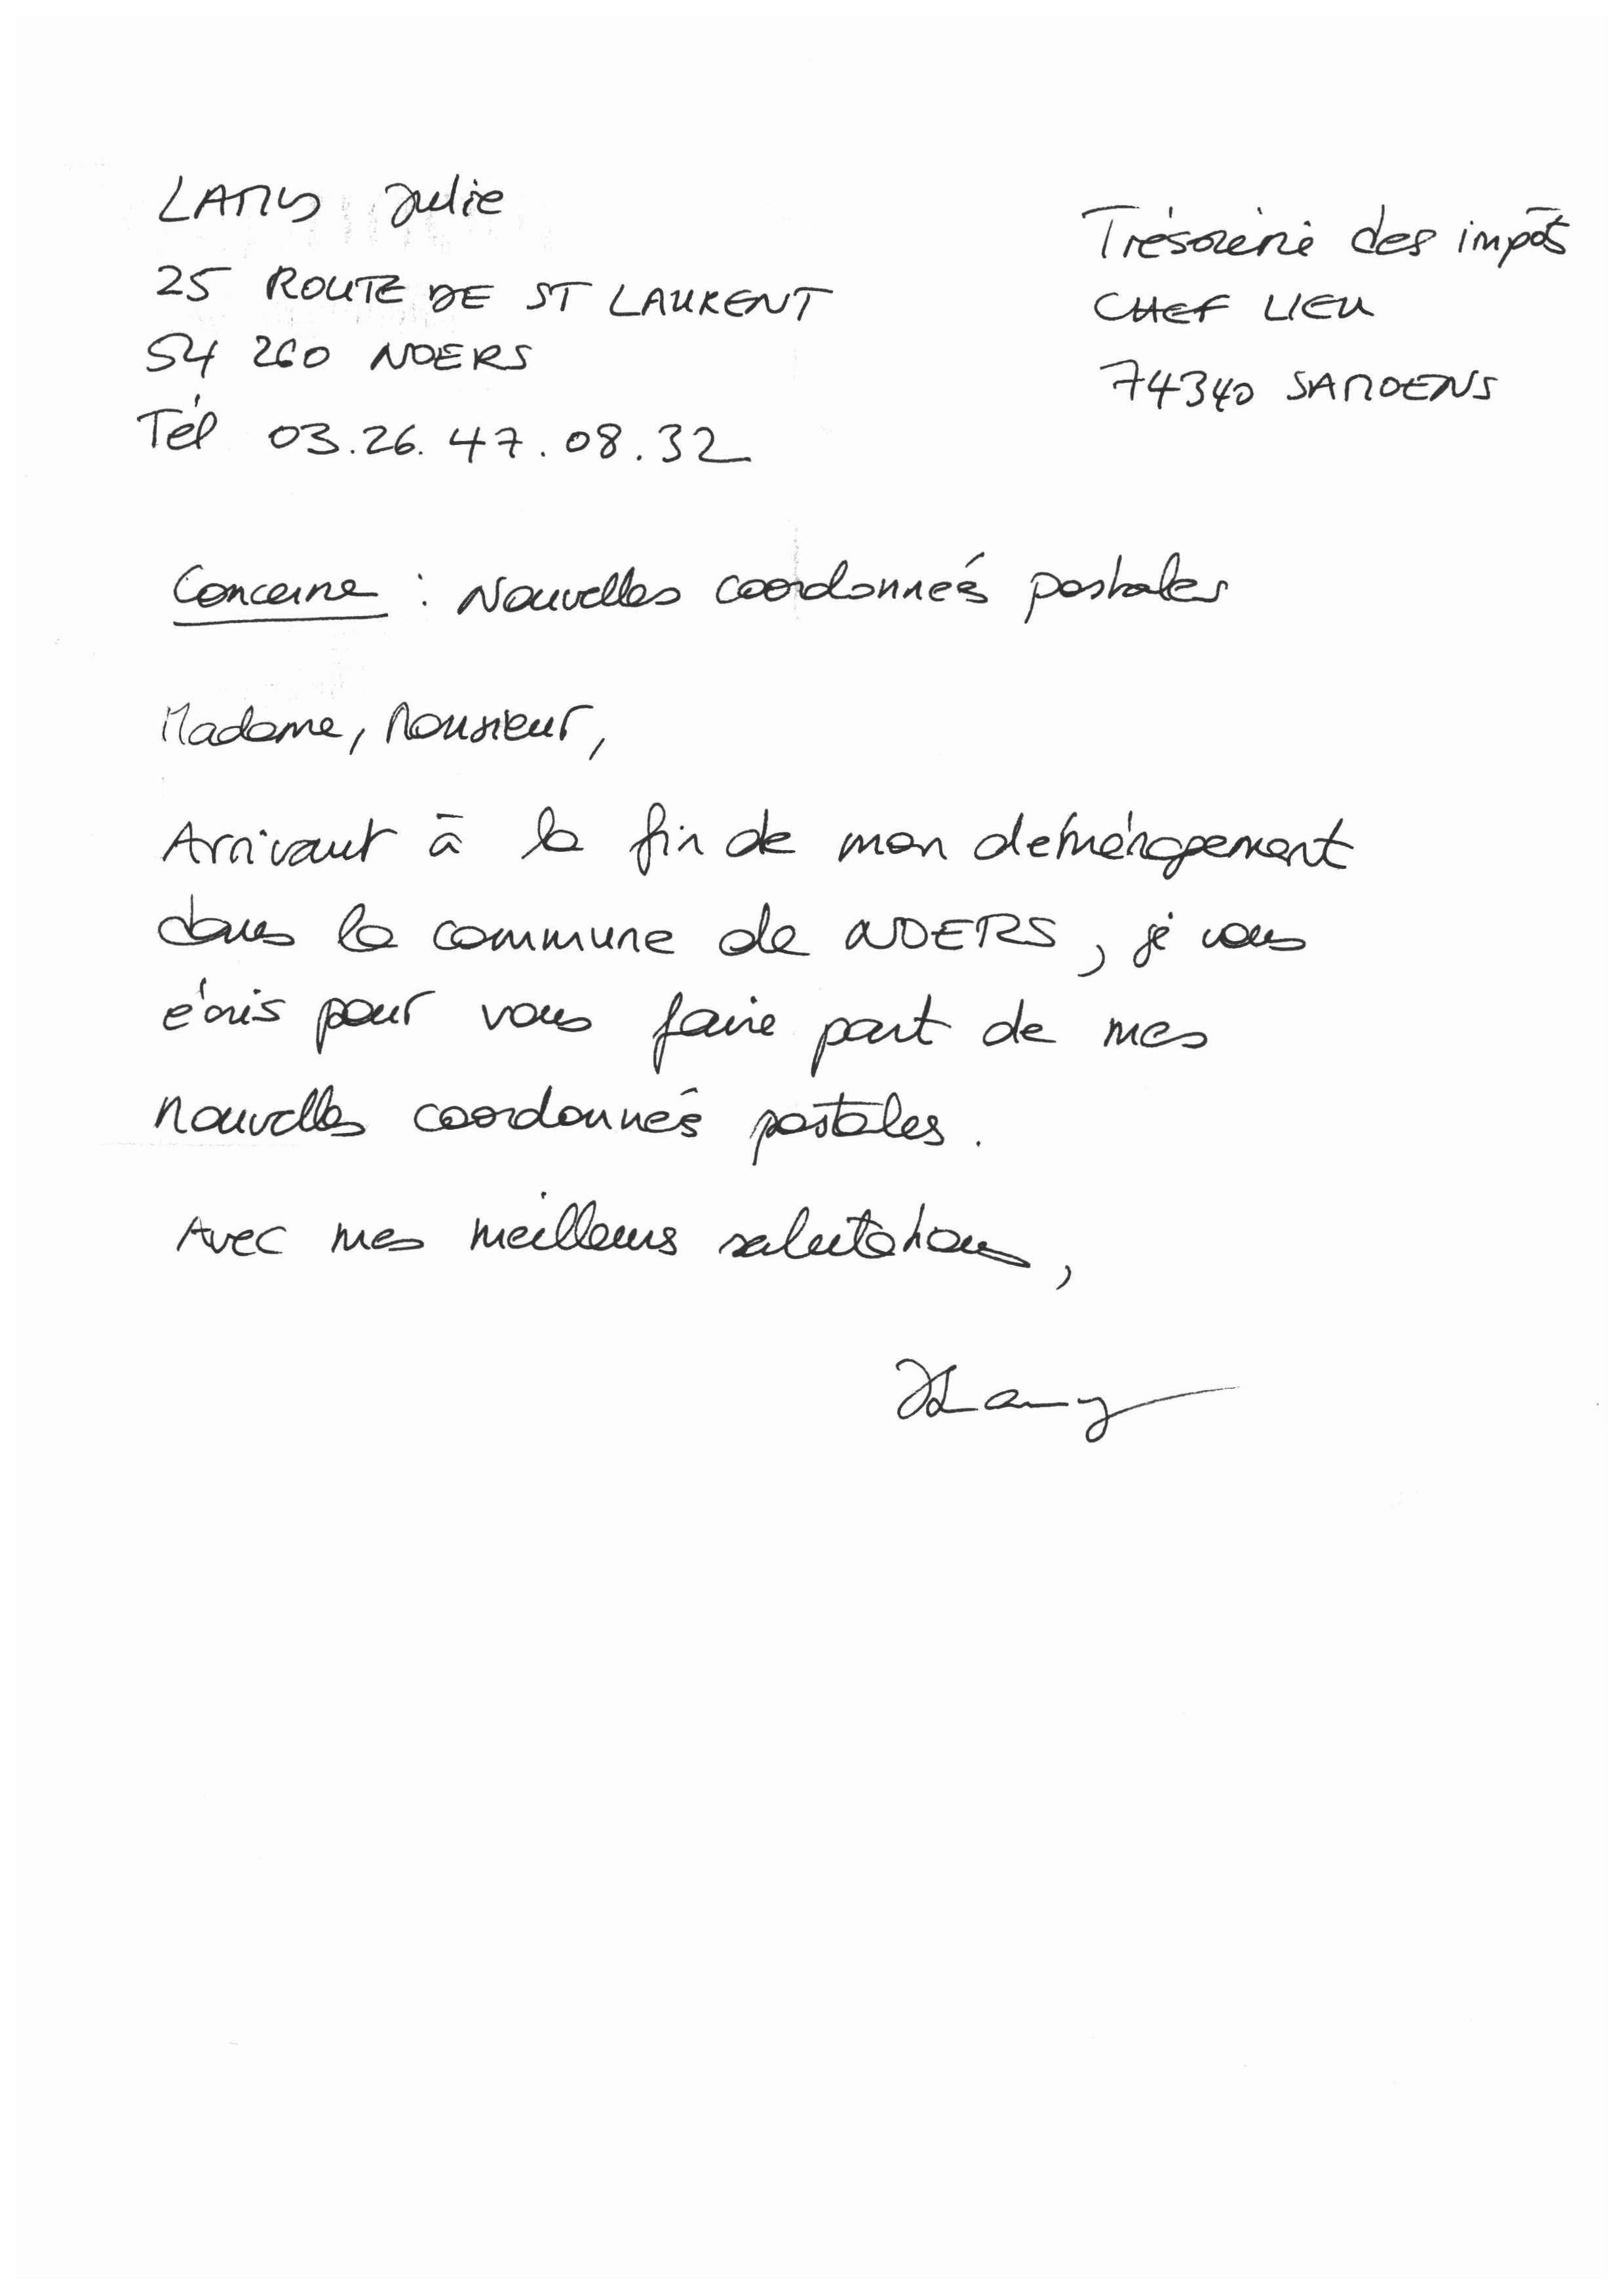 LAMY Julie
25 ROUTE DE ST LAURENT
54 260 NOERS
Tél 03.26.47.08.32
Trésorerie des impôts
CHEF LIEU
74340 SAMOENS
Concerne : Nouvelles coordonnées postales
Madame, Monsieur,
Arrivant à la fin de mon déménagement
dans la commune de NOERS, je vous
écris pour vous faire part de mes
nouvelles coordonnées postales.
Avec mes meilleurs salutations,
JLamy